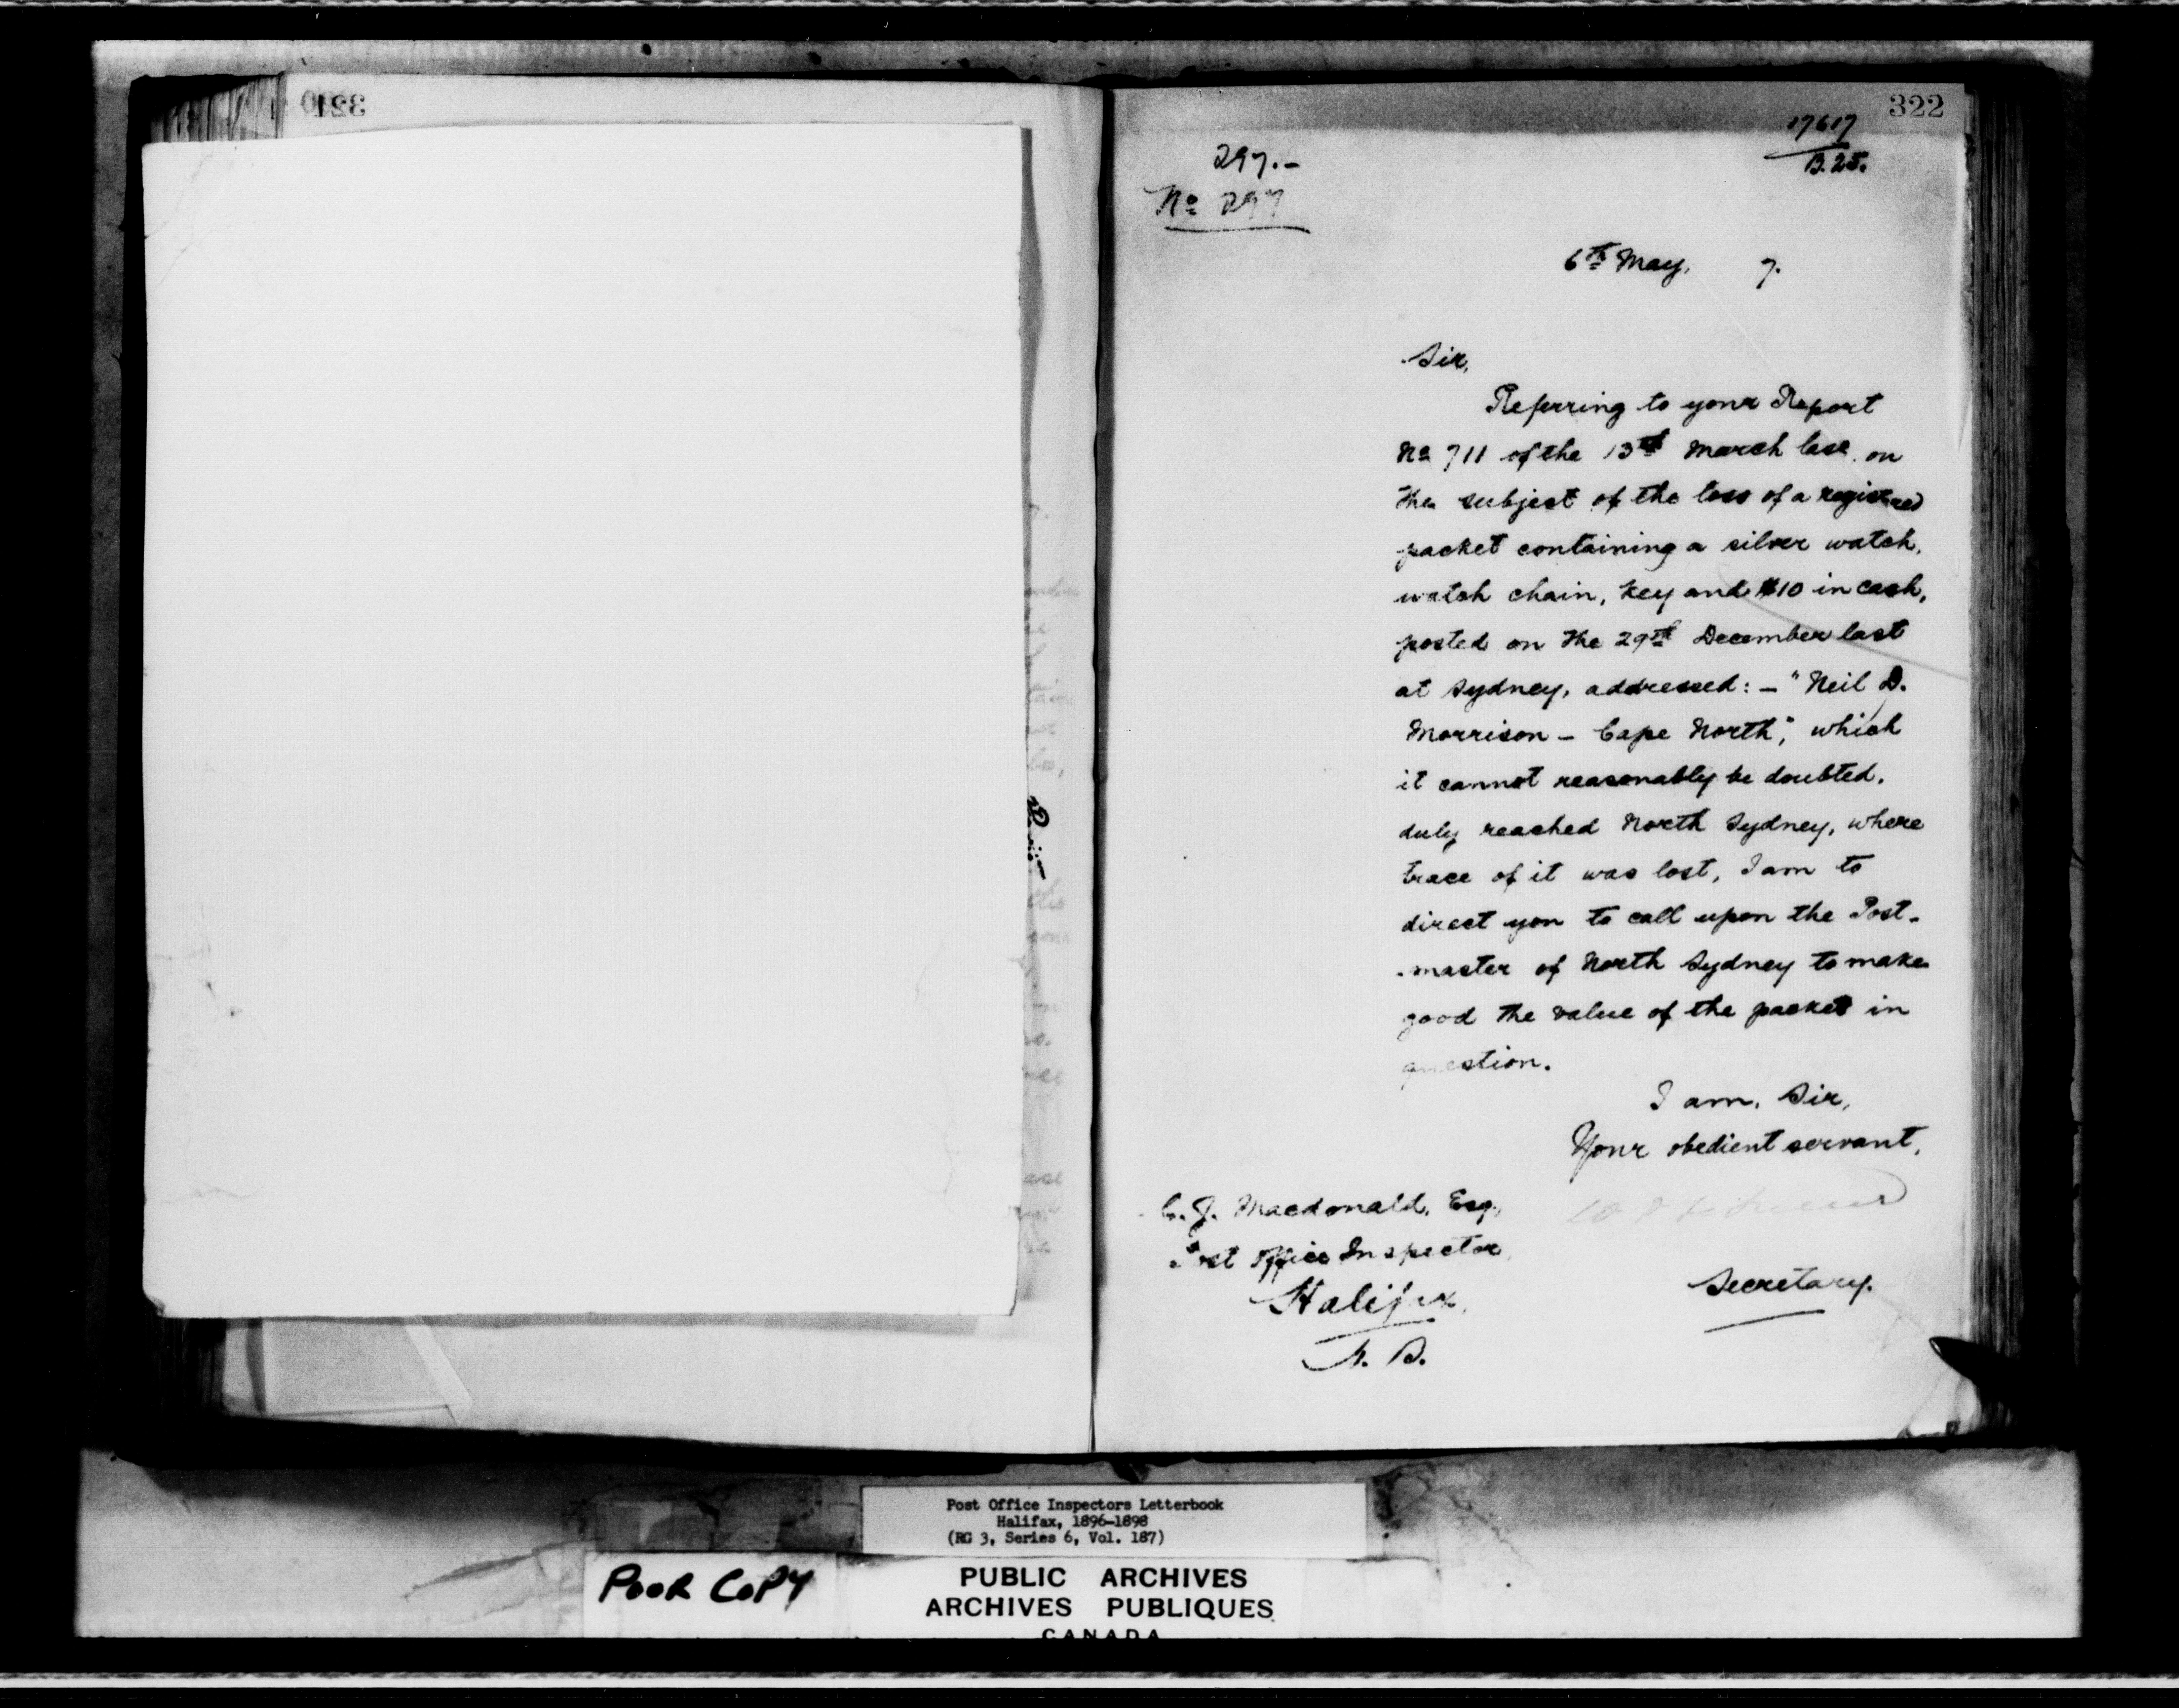 321
322
17617
B.25.
297.-
No 297
6th May, 7.
Sir,
Referring to your Report
No 711 of the 13th March last, on
the subject of the loss of a registered
packet containing a silver watch,
watch chain, key and $10 in cash,
posted on the 29th December last
at Sydney, addressed: - "Neil D.
Morrison - Cape North," which
it cannot reasonably be doubted,
duly reached North Sydney, where
trace of it was lost, I am to
direct you to call upon the Post-
-master of North Sydney to make
good the value of the packet in
question.
I am, Sir,
Your obedient servant,
Secretary.
C. J. Macdonald, Esq.,
Post Office Inspector,
Halifax,
Post Office Inspectors Letterbook
Halifax, 1896-1898
(RG 3, Series 6, Vol. 187)
POOR COPY
PUBLIC ARCHIVES
ARCHIVES PUBLIQUES
CANADA